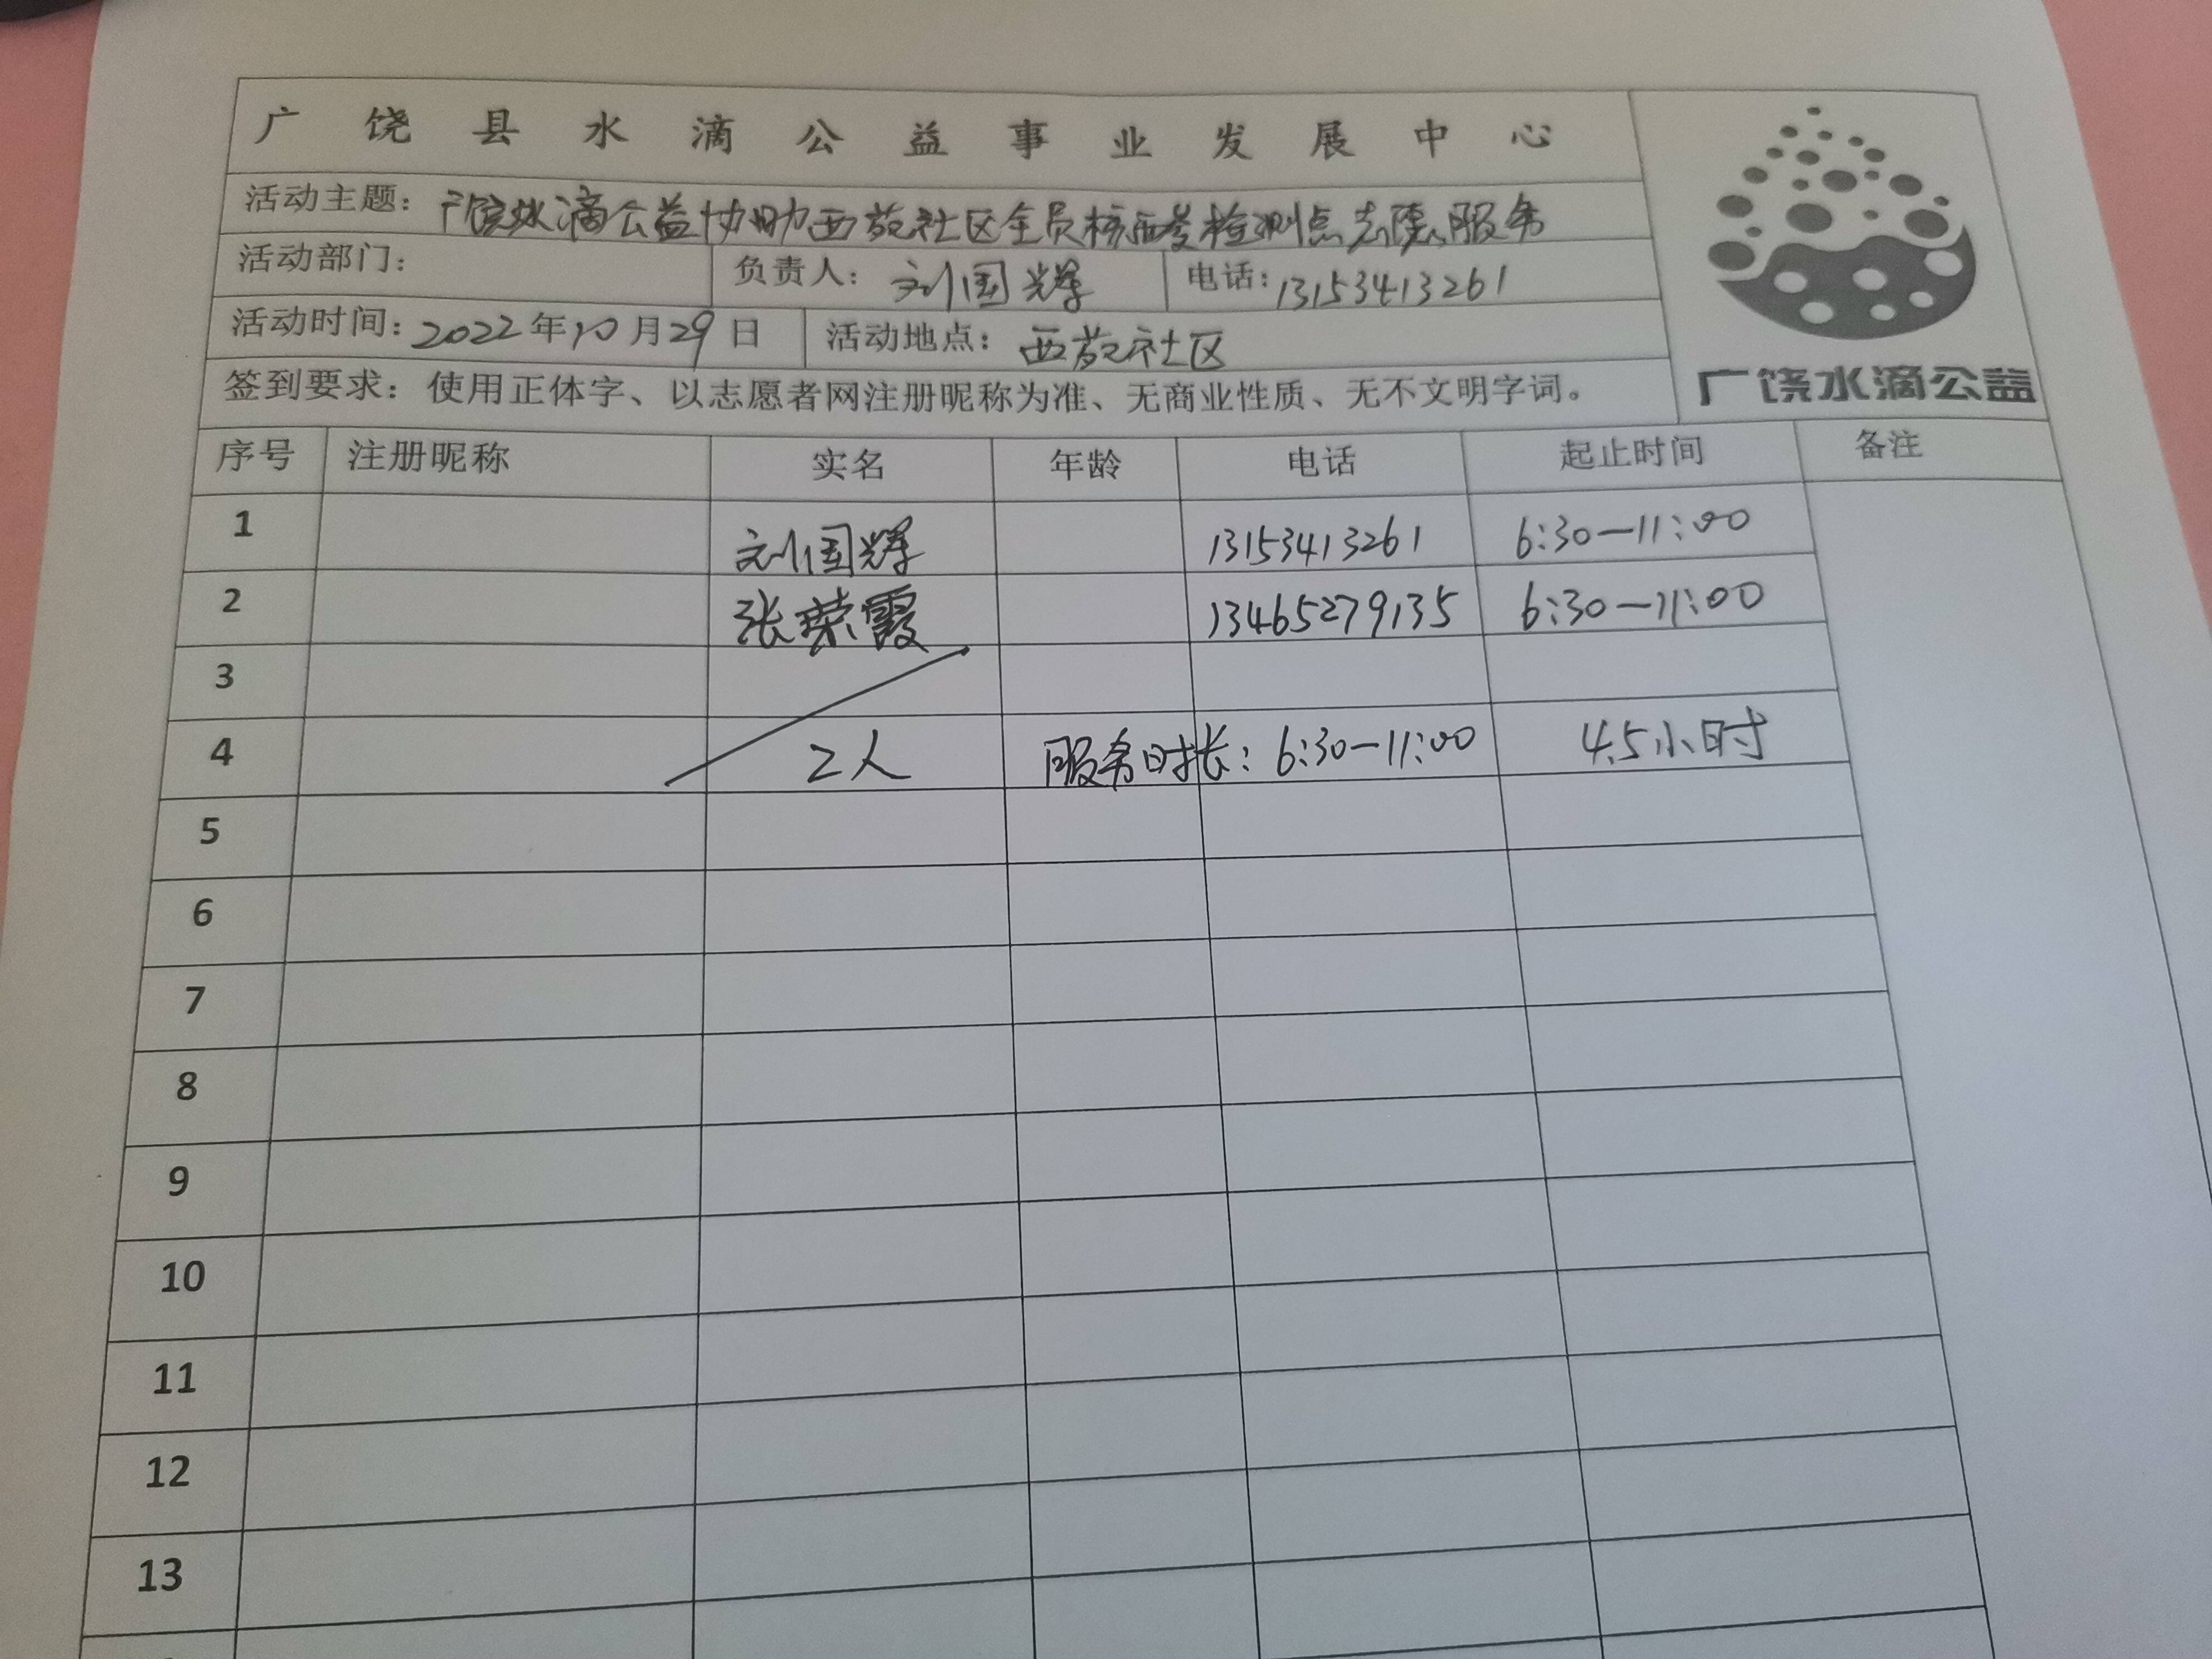 广饶县水滴公益事业发展中心
活动主题：广饶水滴公益协助西苑社区全员核酸检测点志愿服务
活动部门： 负责人：刘国辉 电话：13153413261
活动时间：2022年10月29日 活动地点：西苑社区
签到要求：使用正体字、以志愿者网注册昵称为准、无商业性质、无不文明字词。
广饶水滴公益
序号 注册昵称 实名 年龄 电话 起止时间 备注
1 刘国辉 13153413261 6:30—11:00
2 张荣霞 13465279135 6:30—11:00
3
4 2人 服务时长：6:30—11:00 4.5小时
5
6
7
8
9
10
11
12
13